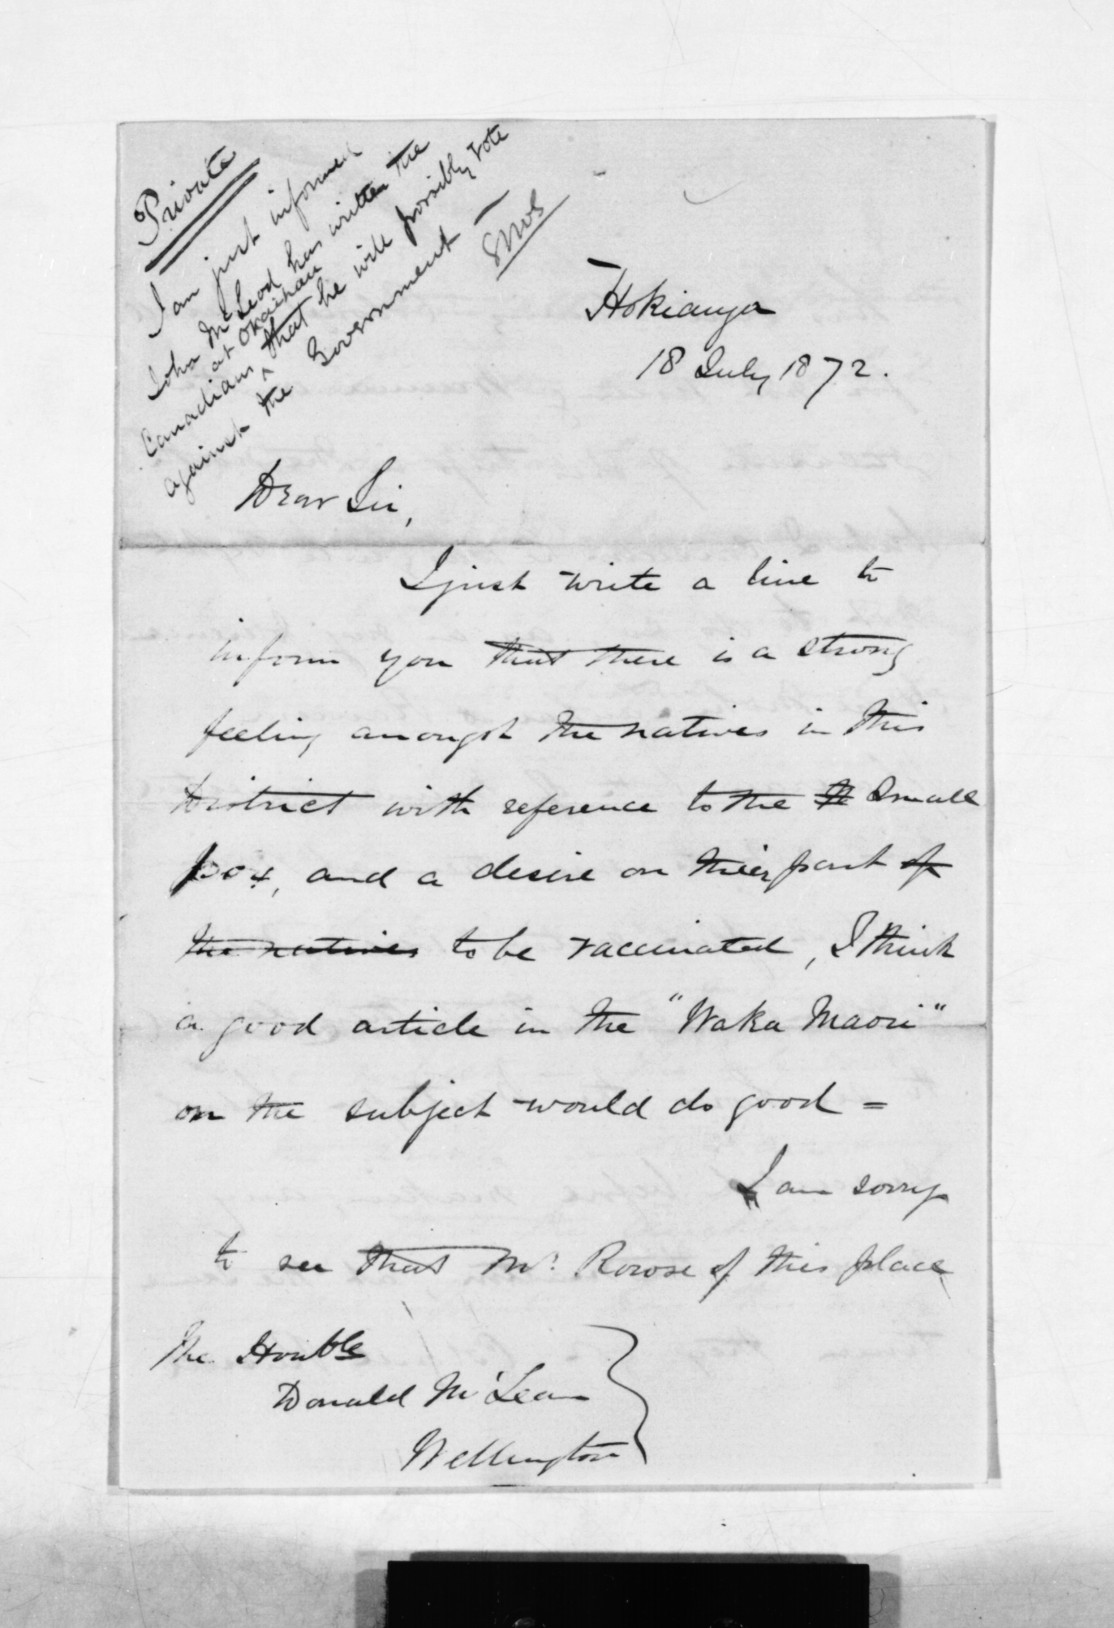 Private
I am just informed
John McLeod has written the
Canadians at Okaihau that he will possibly vote
against the Government —
Hokianga
18 July 1872.
Dear Sir,
I just write a line to
inform you that there is a strong
feeling amongst the natives in this
District with reference to the Small
pox, and a desire on their part of
the natives to be vaccinated, I think
a good article in the "Waka Maori"
on the subject would do good =
I am sorry
to see that Mr. Rowse of this place
The Honble
Donald McLean
Wellington